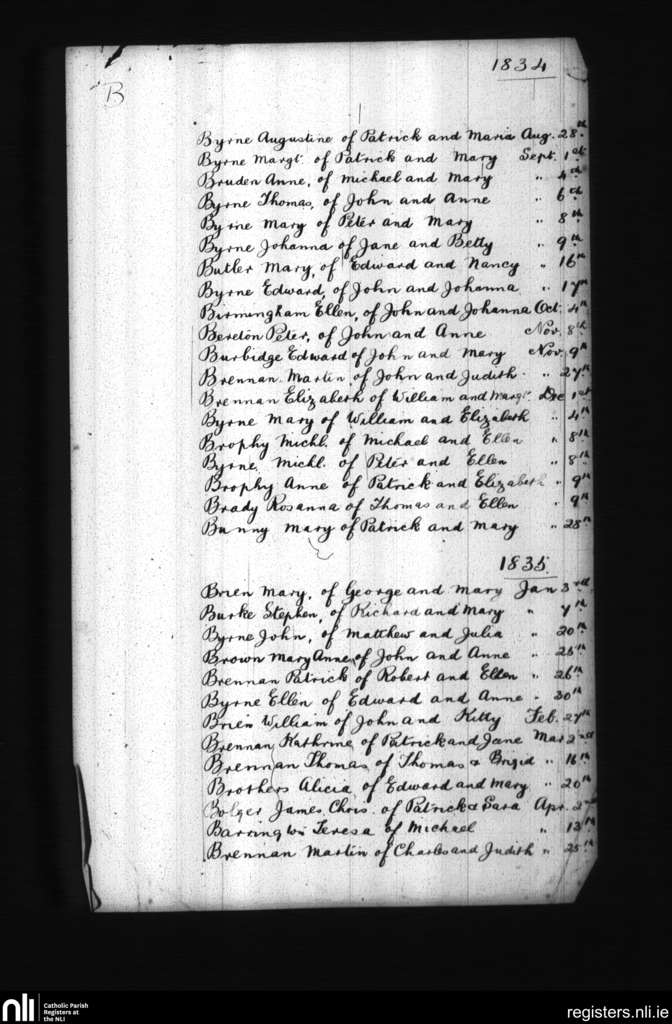 B
1834
Byrne Augustine of Patrick and Maria Aug. 28th
Byrne Margt. of Patrick and Mary Sept. 1st
Bruden Anne, of Michael and Mary " 4th
Byrne Thomas, of John and Anne " 6th
Byrne Mary of Peter and Mary " 8th
Byrne Johanna of Jane and Betty " 9th
Butler Mary, of Edward and Nancy " 16th
Byrne Edward, of John and Johanna " 17th
Birmingham Ellen, of John and Johanna Oct. 4th
Bereton Peter, of John and Anne Nov. 8th
Burbidge Edward of John and Mary Nov. 9th
Brennan Martin, of John and Judith " 27th
Brennan Elizabeth of William and Margt. Dec 1st
Byrne Mary of William and Elizabeth " 4th
Brophy Michl. of Michael and Ellen " 8th
Byrne, Michl. of Peter and Ellen " 8th
Brophy Anne of Patrick and Elizabeth " 9th
Brady Rosanna of Thomas and Ellen " 9th
Bunny Mary of Patrick and Mary " 28th
1835
Brien Mary, of George and Mary Jan 3rd
Burke Stephen, of Richard and Mary " 7th
Byrne John, of Matthew and Julia " 20th
Brown Mary Anne, of John and Anne " 25th
Brennan Patrick of Robert and Ellen " 26th
Byrne Ellen of Edward and Anne " 30th
Brien William of John and Kitty Feb. 27th
Brennan Kathrine, of Patrick and Jane Mar 2nd
Brennan Thomas of Thomas & Brigid " 16th
Brothers Alicia, of Edward and Mary " 20th
Bolger James Chris. of Patrick & Sara Apr. 2nd
Barrington Teresa of Michael " 13th
Brennan Martin of Charles and Judith " 25th
nli Catholic Parish
Registers at
the NLI
registers.nli.ie